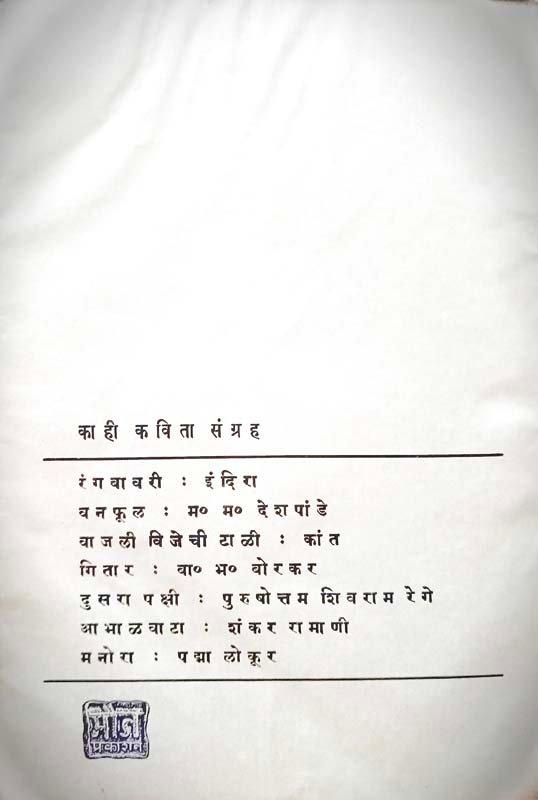 काही कविता संग्रह
रंगबावरी : इंदिरा
वनफूल : म० म० देशपांडे
वाजली विजेची टाळी : कांत
गितार : बा० भ० बोरकर
दुसरा पक्षी : पुरुषोत्तम शिवराम रेगे
आभाळवाटा : शंकर रामाणी
मनोरा : पद्मा लोकूर
मौज
प्रकाशन